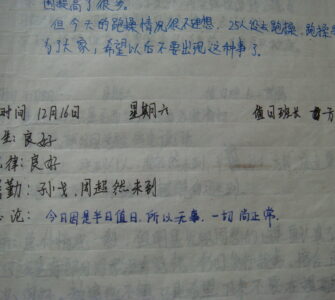 因提高了很多。
但今天的跑操情况很不理想，25人没去跑操，跑操
为了大家，希望以后不要出现这种事了。
时间 12月16日 星期六 值日班长 方
生：良好
律：良好
勤：孙戈，周超然未到
论：今日因是半日值日，所以无事，一切尚正常。